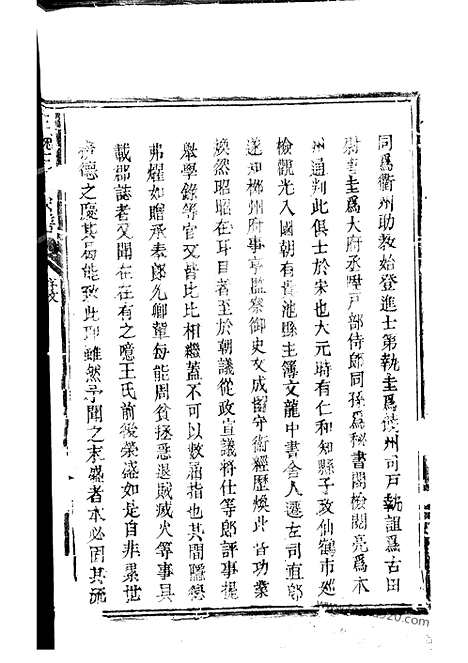 同爲衢州助教始登進士第執圭爲饒州司戸執誼爲古田
尉書圭爲大府丞曄戸部侍郎同孫爲秘書閣檢閱亮爲本
州通判此俱士於宋也大元時有仁和知縣子攻仙鶴市廵
檢觀光入國朝有貴池縣主簿文龍中書舍人遷左司直郎
遂知郴州府事亨監察御史文成留守衛經歷煥此皆功業
煥然昭昭在耳目著至於朝議從政宣議將仕等郎評事提
舉學錄等官又皆比比相繼蓋不可以數涵指也其間隱戀
弗耀如贈承素郎允卿輩每能周貧拯惡退賊滅火等事具
載郡誌者又聞在在有之噫王氏前後榮盛如是自非累世
積德之慶其曷能致此耶雖然予聞之末盛者本必固其流